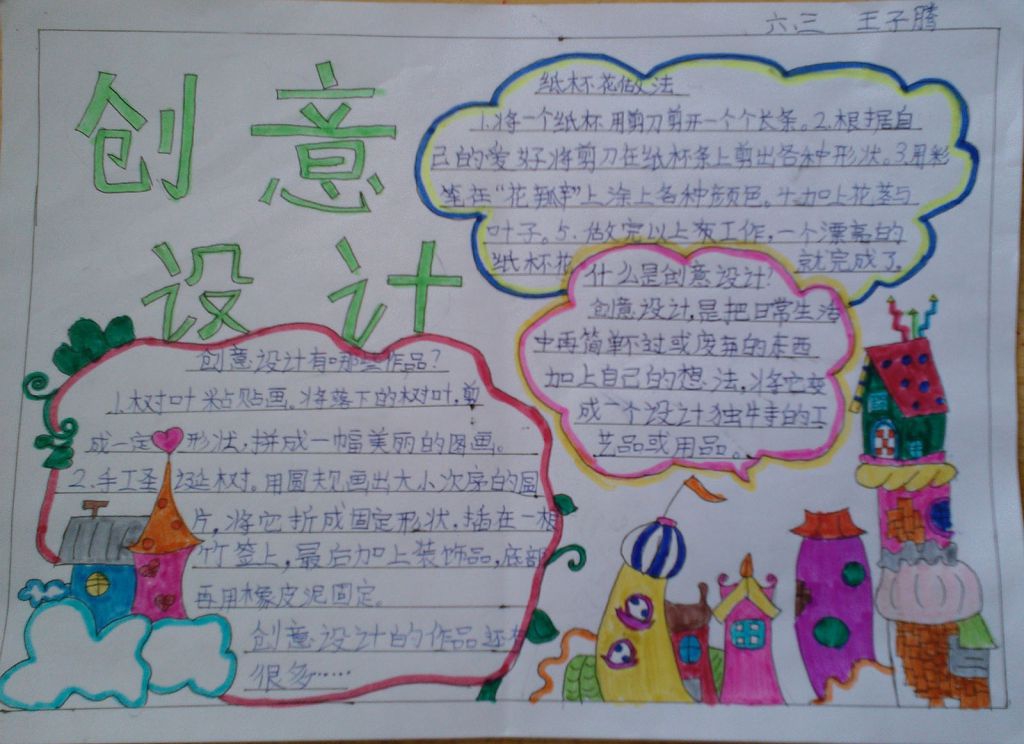 六.三 王子腾
创意
设计
纸杯花做法
1.将一个纸杯用剪刀剪开一个个长条。2.根据自
己的爱好将剪刀在纸杯条上剪出各种形状。3.用彩
笔在“花瓣”上涂上各种颜色。4.加上花茎与
叶子。5.做完以上工作,一个漂亮的
纸杯花就完成了
什么是创意设计?
创意设计,是把日常生活
中再简单不过或废弃的东西
加上自己的想法,将它变
成一个设计独特的工
艺品或用品。
创意设计有哪些作品?
1.树叶粘贴画。将落下的树叶,剪
成一定形状,拼成一幅美丽的图画。
2.手工圣诞树。用圆规画出大小次序的圆
片,将它折成固定形状,插在一根
竹签上,最后加上装饰品,底部
再用橡皮泥固定。
创意设计的作品还有
很多……